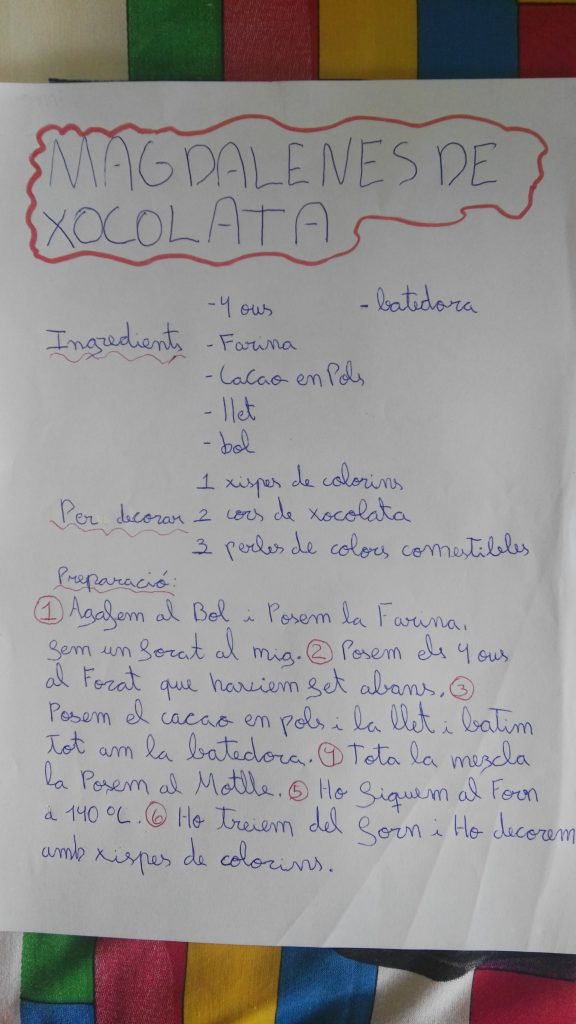 MAGDALENES DE
XOCOLATA
- 4 ous - batedora
Ingredients - Farina
- Cacao en Pols
- llet
- bol
1 xispes de colorins
Per decorar 2 cors de xocolata
3 perles de colors comestibles
Preparació:
1 Agafem al Bol i Posem la Farina,
fem un forat al mig. 2 Posem els 4 ous
al Forat que haviem fet abans. 3
Posem el cacao en pols i la llet i batim
tot am la batedora. 4 Tota la mezcla
la Posem al Motlle. 5 Ho fiquem al Forn
a 140 ºC. 6 Ho treiem del forn i Ho decorem
amb xispes de colorins.